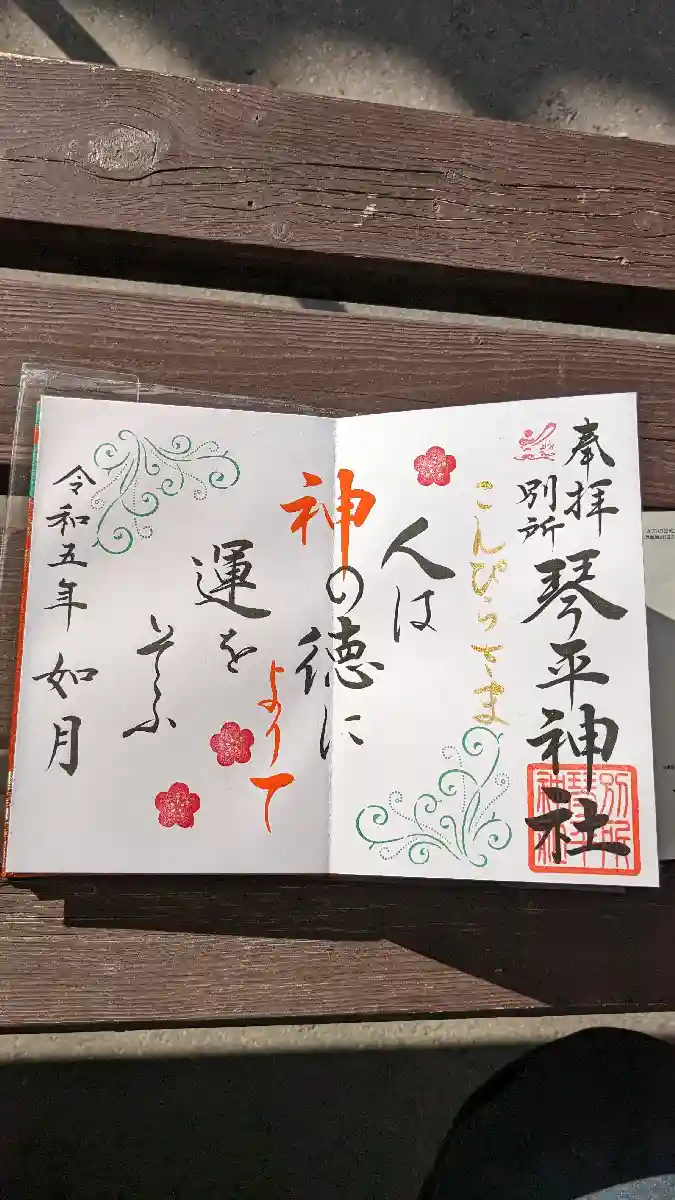 奉拝
別所
琴平神社
別所琴平神社
こんぴらさま
人は
神の徳に
よりて
運を
そふ
令和五年
如月